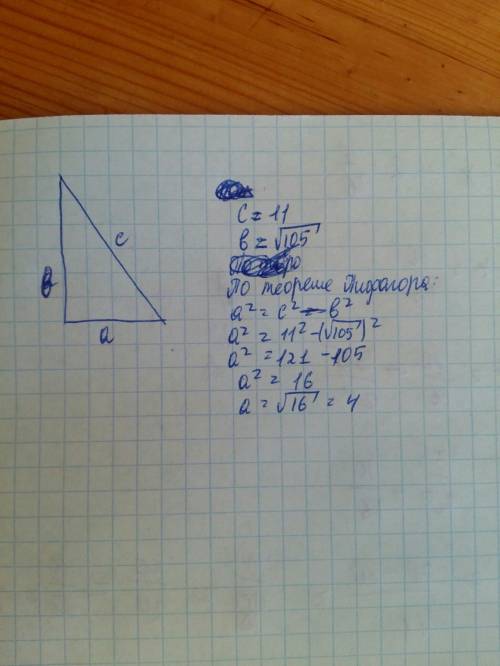 c
b
a
C = 11
b = √105
По теореме Пифагора:
a² = c² - b²
a² = 11² - (√105)²
a² = 121 - 105
a² = 16
a = √16 = 4